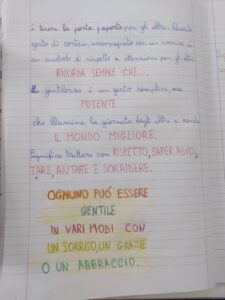 è tenere la porta aperta per gli altri. Questo
gesto di cortesia, accompagnato con un sorriso è
un simbolo di rispetto e attenzione per gli altri.
RICORDA SEMPRE CHE...
La gentilezza è un gesto semplice, ma
POTENTE
che illumina la giornata degli altri e rende
IL MONDO MIGLIORE.
Significa trattare con RISPETTO, SAPER ASCOL
TARE, AIUTARE E SORRIDERE.
OGNUNO PUÓ ESSERE
GENTILE
IN VARI MODI CON
UN SORRISO, UN GRAZIE
O UN ABBRACCIO.